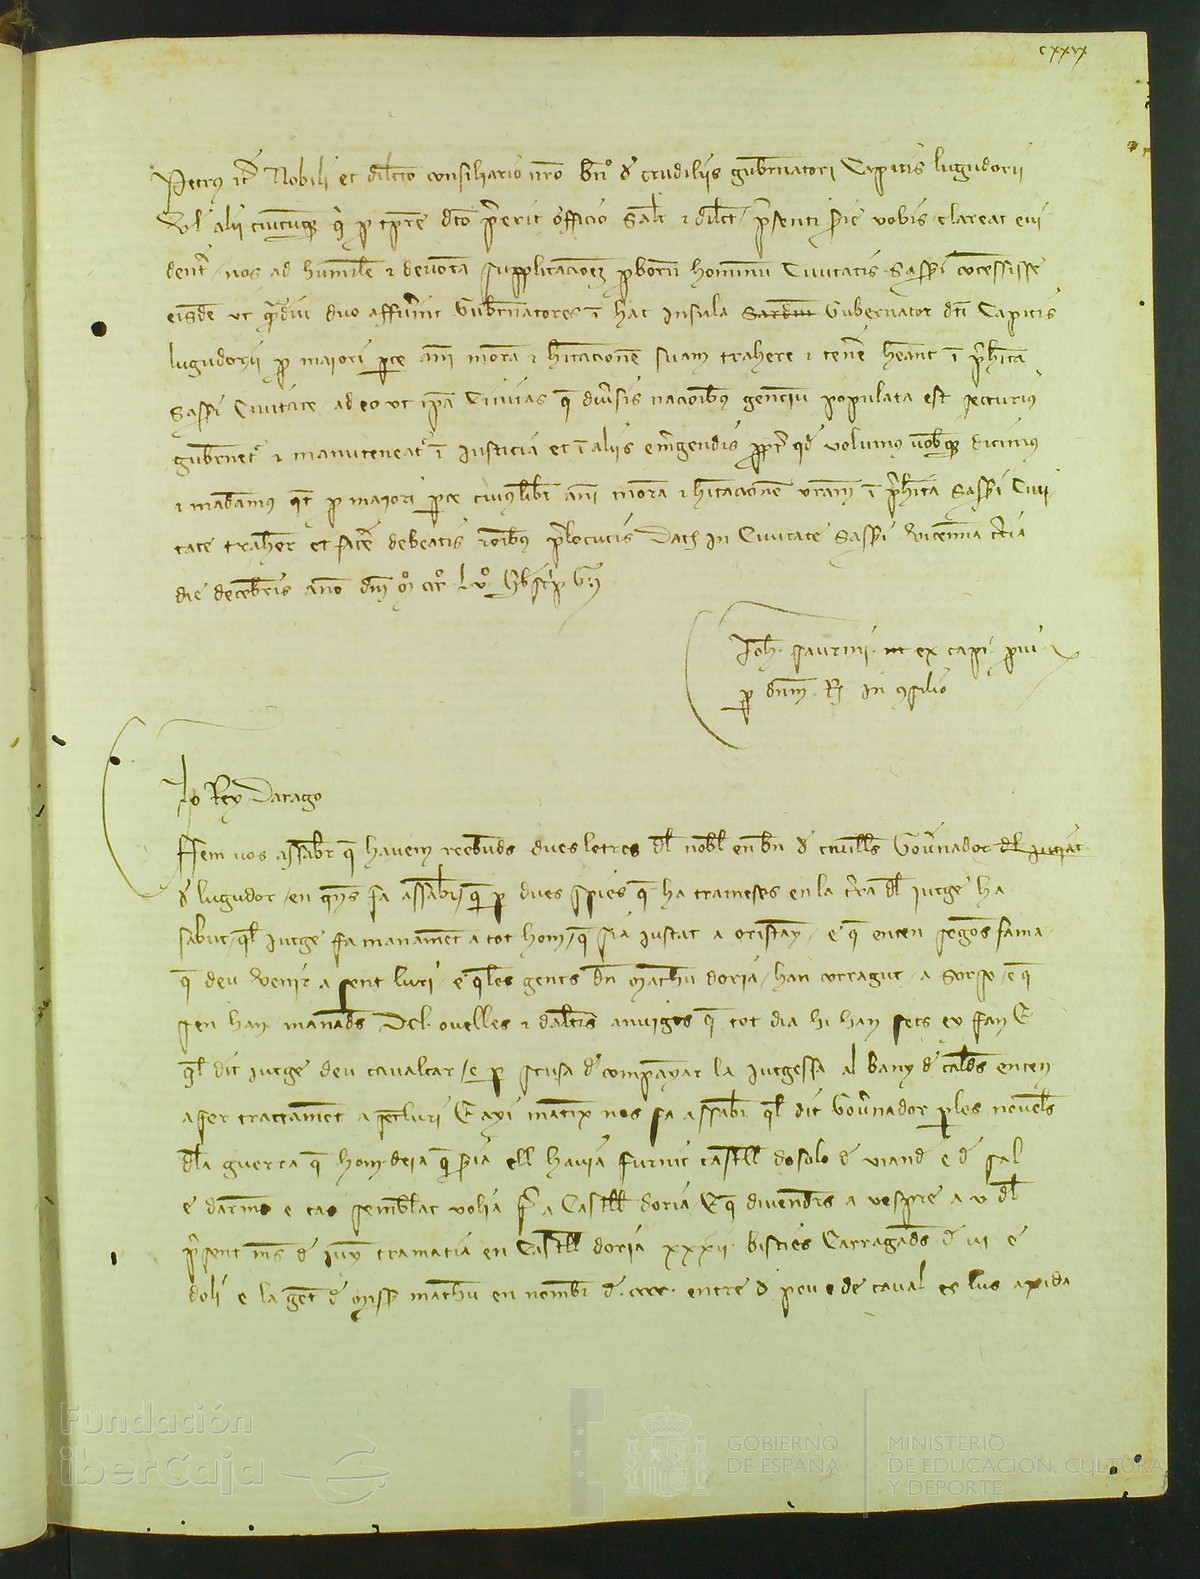 cxxix
Petrus etc. Nobili et dilecto consiliario nro bno de crudiliis gubernatori Capitis lugudorii
Vel alii cuicumque qui pro tempore dco prerit officio Salt et dilect presenti serie vobis clareat evi
denter nos ad humile et devota supplicacionem proborum hominum Civitatis Sasseri concessisse
eisdem ut quamdiu duo affuerint Gubernatores in hac Insula Sardin Gubernator dci Capitis
lugudorii pro maiori parte anni mora et habitacionem suam trahere et tenere heant in prehita
Sasseri Civitate adeo ut ipsa Civitas que diversis nacionibus gencium populata est securius
gubernetur et manuteneatur in Iusticia et in aliis emergendis propter quod volumus vobisque dicimus
et mandamus quatenus pro maiori parte cuiuslibet anni mora et habitacionem vram in prehita Sasseri Civi
tate trahere et facere debeatis racionibus prelocutis Dat in Civitate Sasseri vicesima tercia
die decembris anno dni
Joh. saurini ex capi. pui
per dnum R. in consilio
Lo Rey Darago
Ffem vos assaber que havem reebuds dues letres del noble en bn de cruilles Governador
de lugudor en quens fa assaber que per dues spies que ha trameses en la terra del Iutge ha
sabut quel Iutge fa manament a tot hom que sia iustat a oristany e que enten segons fama
que deu venir a sent luri e que les gents den Matheu doria han corragut a Sorso e que
sen han manads Dcl. ovelles e daltres anuigos que tot dia hi han fets ey fan E
quel dit iutge deu cavalcar e per scusa de companyar la Iutgessa al bany de calds enten
a fer tractament a sent luri E axi mateix nos fa assaber quel dit Governador per les novelles
dela guerra que hom deia que seria ell havia furnit castell dosolo de viand e de sal
e darmes e cao semblat volia fer a Castell doria E que divendres a vespre a v del
present mes de Juny trametia en Castell doria xxxii bisties Carragads de vi e
doli e la gent de Misser matheu en nombre de cccc. entre D peu e de caval